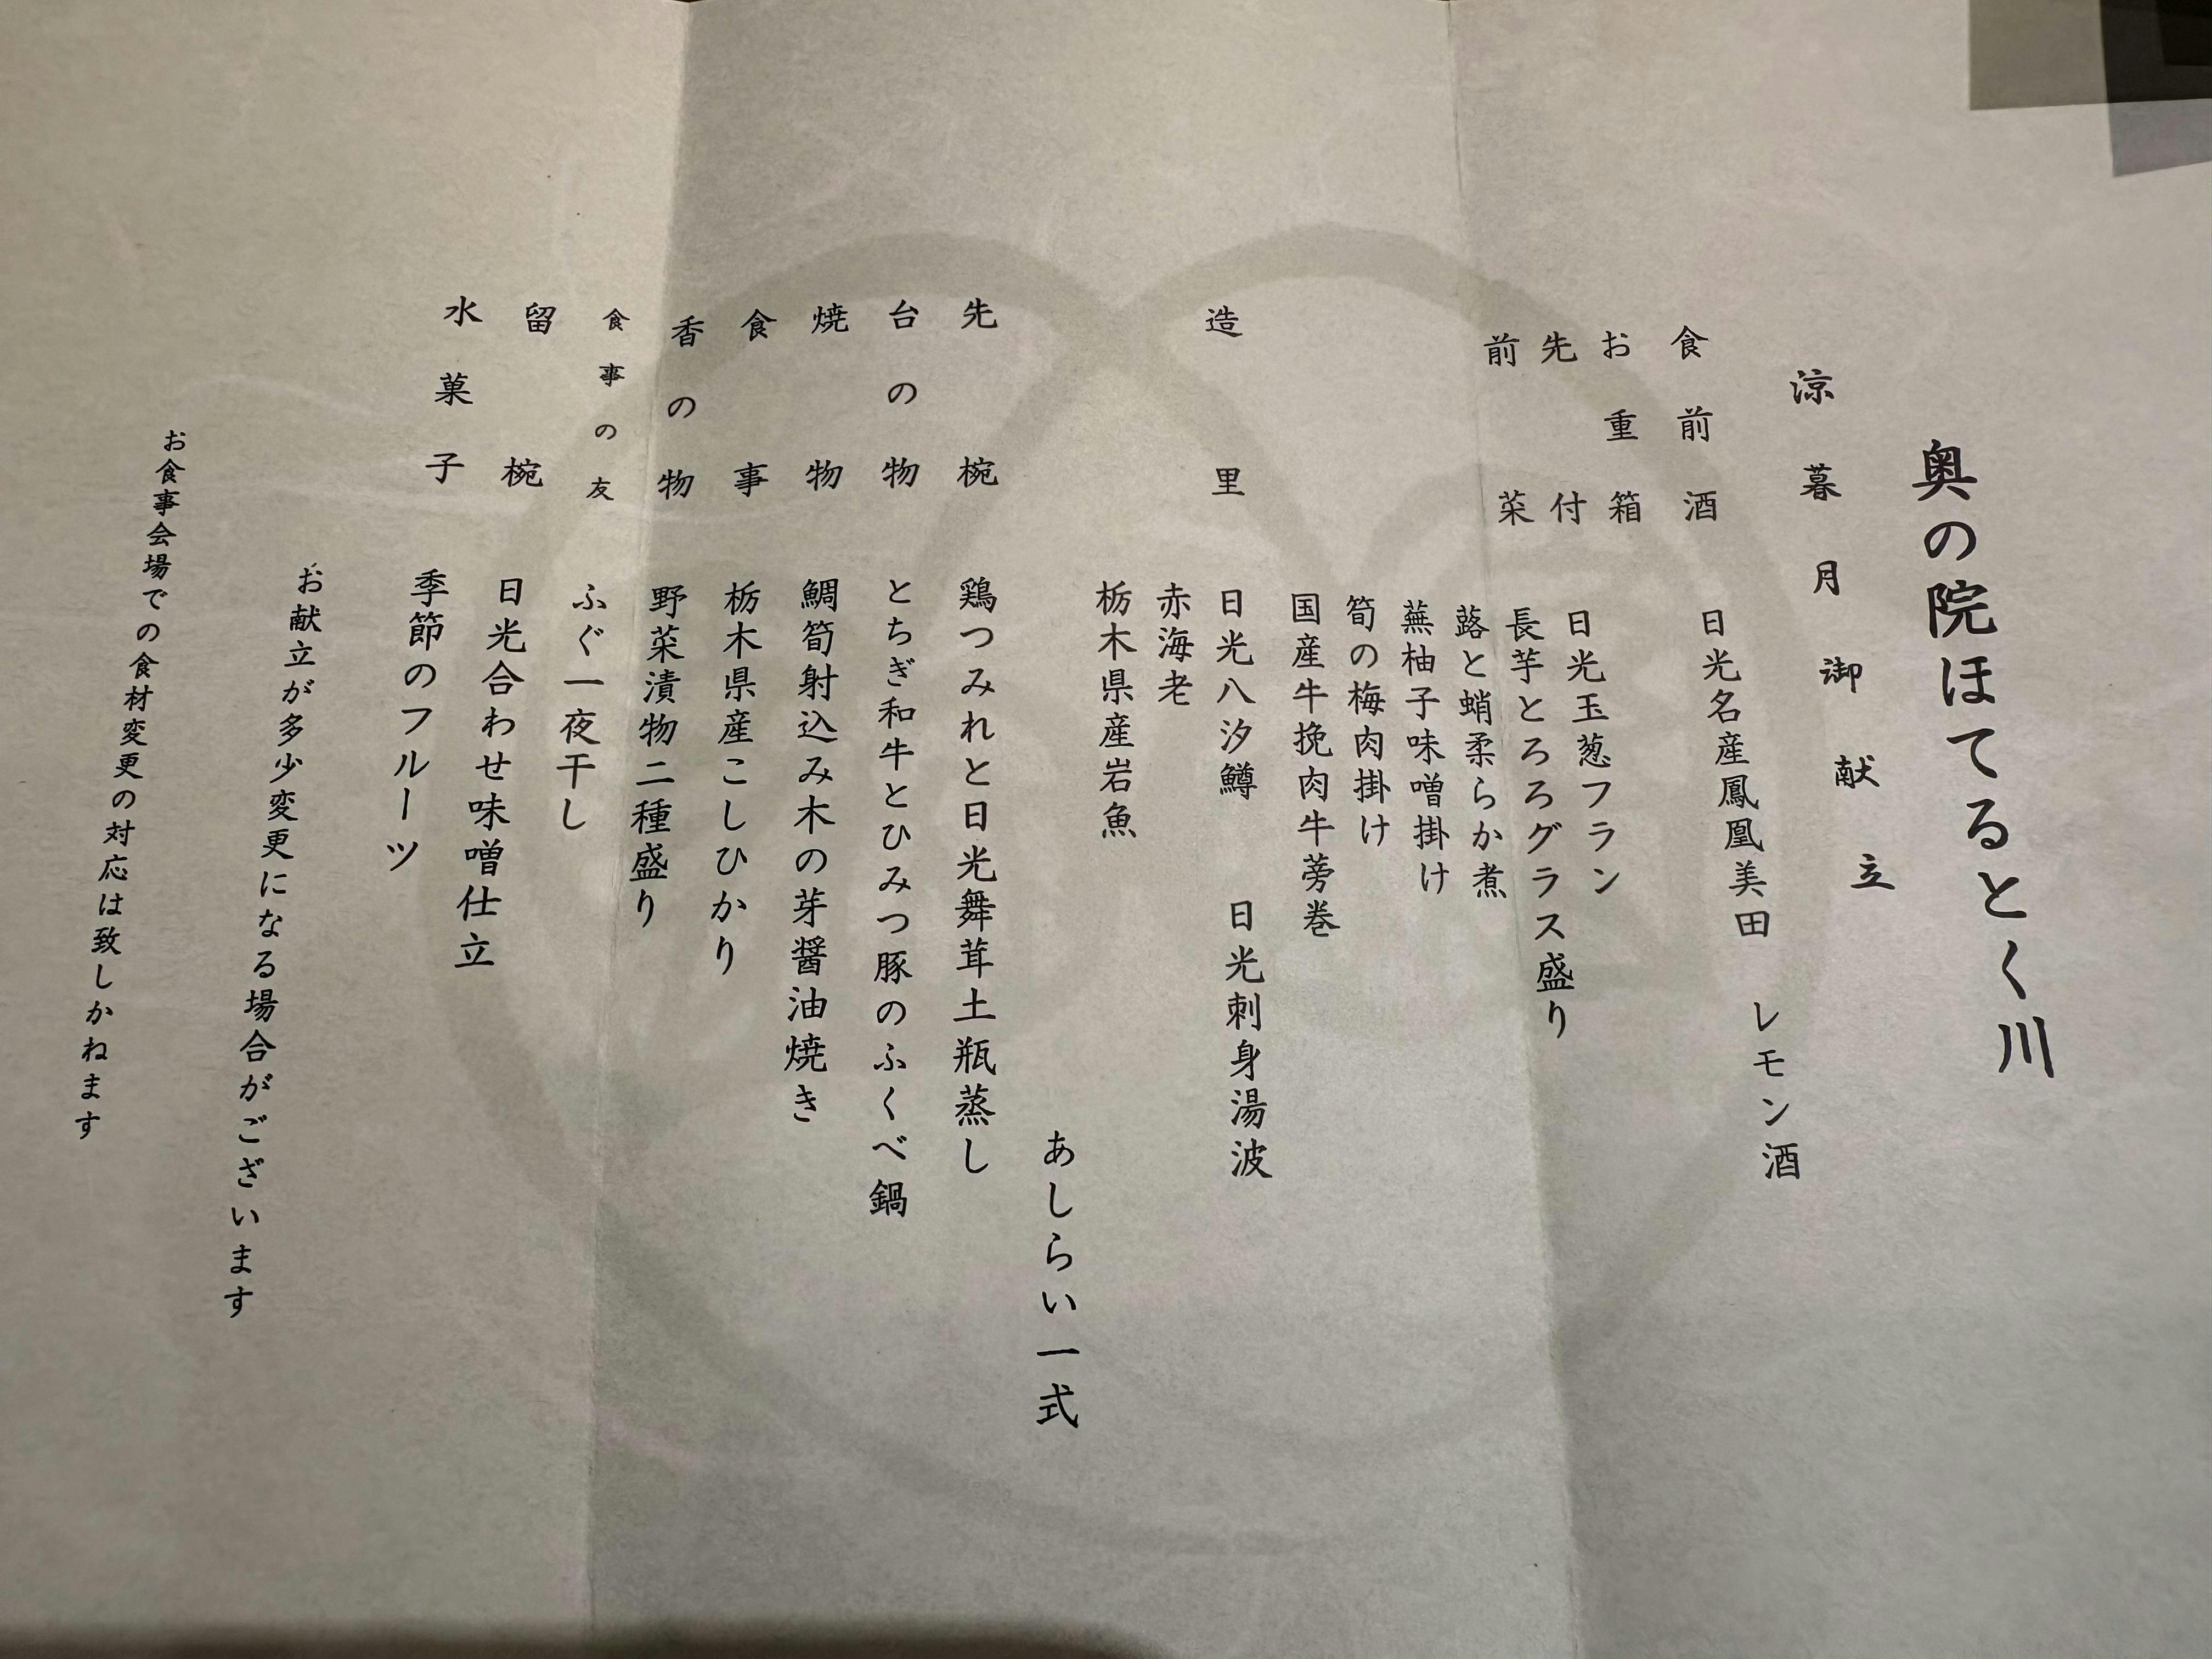 奥の院ほてるとく川
涼暮月御献立
食前酒 日光名産鳳凰美田 レモン酒
お重箱
先付 日光玉葱フラン
前菜 長芋とろろグラス盛り
蕗と蛸柔らか煮
蕪柚子味噌掛け
筍の梅肉掛け
国産牛挽肉牛蒡巻
造里 日光八汐鱒 日光刺身湯波
赤海老
栃木県産岩魚
あしらい一式
先椀 鶏つみれと日光舞茸土瓶蒸し
台の物 とちぎ和牛とひみつ豚のふくべ鍋
焼物 鯛筍射込み木の芽醤油焼き
食事 栃木県産こしひかり
香の物 野菜漬物二種盛り
食事の友 ふぐ一夜干し
留椀 日光合わせ味噌仕立
水菓子 季節のフルーツ
お献立が多少変更になる場合がございます
お食事会場での食材変更の対応は致しかねます